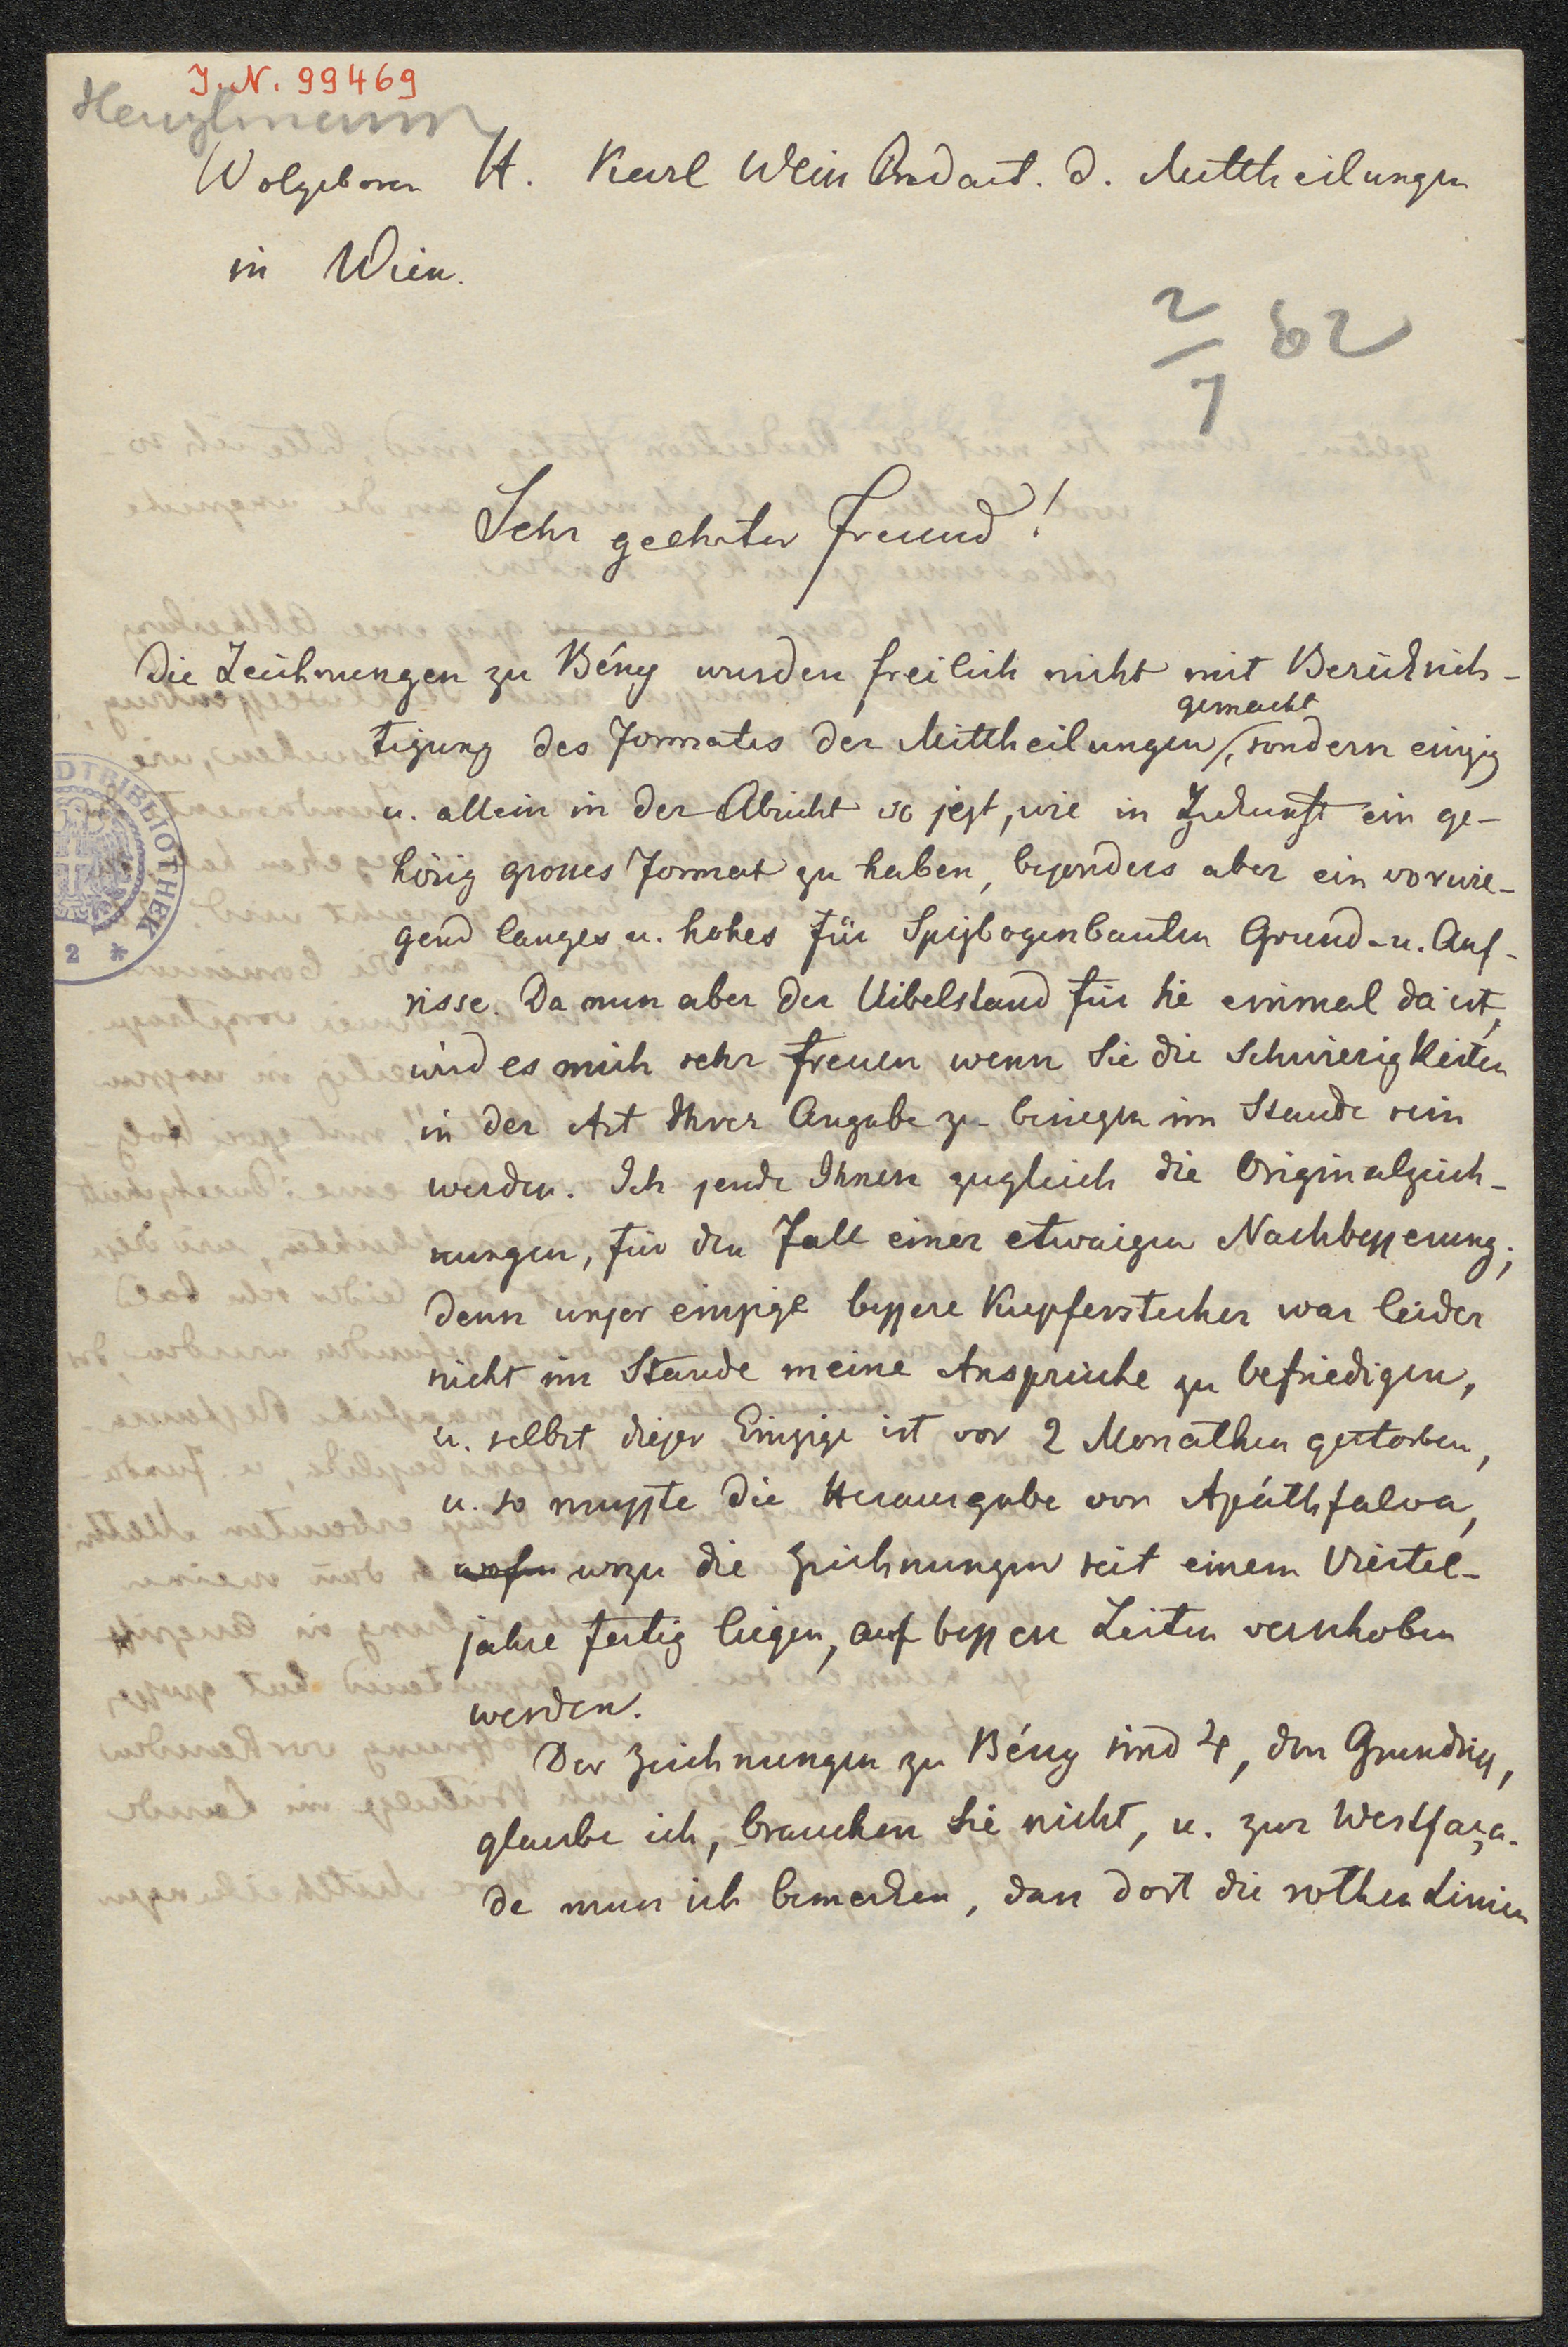 J. N. 99469
Henzlmann
Wolgeboren H. Karl Wein Redact. d. Mittheilungen
in Wien.
2/7 62
Sehr geehrter Freund!
Die Zeichnungen zu Bény wurden freilich nicht mit Berücksich-
gemacht
tigung des Formates der Mittheilungen, sondern einzig
u. allein in der Absicht so jezt, wie in Zukunft ein ge-
hörig grosses Format zu haben, besonders aber ein vorwie-
gend langes u. hohes für Spizbogenbauten Grund- u. Auf-
risse. Da nun aber der Uibelstand für Sie einmal da ist,
wird es mich sehr freuen wenn Sie die Schwierigkeiten
in der Art Ihrer Angabe zu besiegen im Stande sein
werden. Ich sende Ihnen zugleich die Originalzeich-
nungen, für den Fall einer etwaigen Nachbesserung;
denn unser einzige bessere Kupferstecher war leider
nicht im Stande meine Ansprüche zu befriedigen,
u. selbst dieser Einzige ist vor 2 Monathen gestorben,
u. so musste die Herausgabe von Apáthfalva,
wozu die Zeichnungen seit einem Viertel-
jahre fertig liegen, auf bessere Zeiten verschoben
werden.
Der Zeichnungen zu Bény sind 4, den Grundriss,
glaube ich, brauchen Sie nicht, u. zur Westfaça-
de muss ich bemerken, dass dort die rothen Linien
STADTBIBLIOTHEK